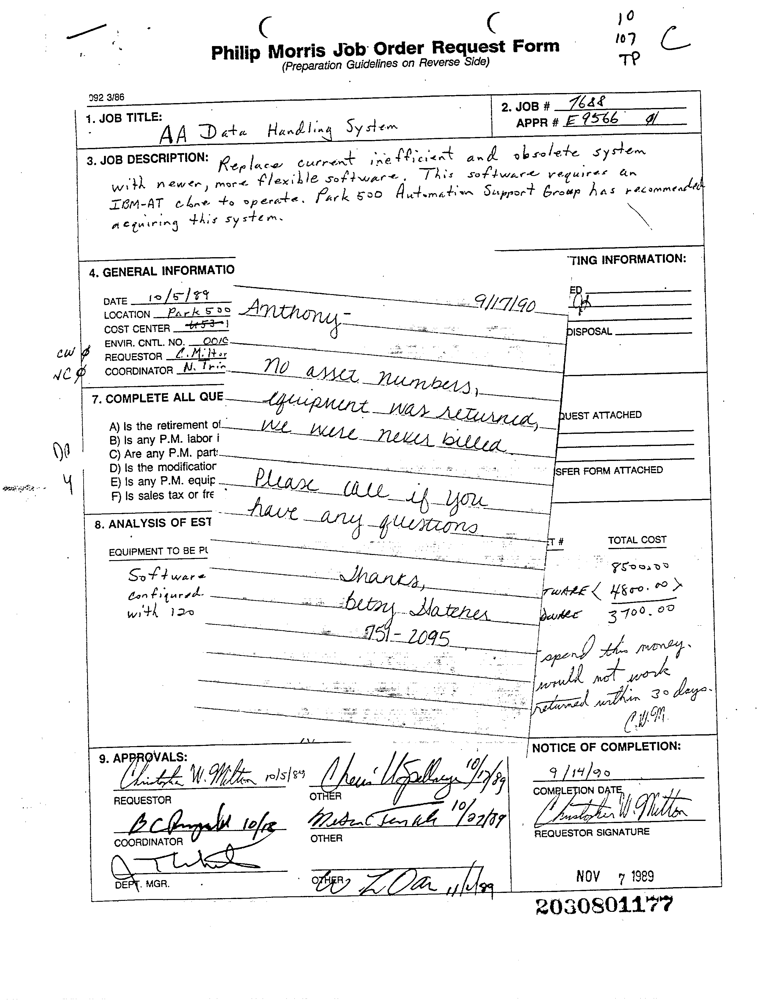 10
107
TP
C
Philip Morris Job Order Request Form
(Preparation Guidelines on Reverse Side)
092 3/86
1. JOB TITLE:
AA Data Handling System
2. JOB # 7688
APPR # E9566
3. JOB DESCRIPTION: Replace current inefficient and obsolete system
with newer, more flexible software. This software requires an
IBM-AT clone to operate. Park 500 Automation Support Group has recommended
acquiring this system.
4. GENERAL INFORMATIO
TING INFORMATION:
DATE 10/5/89
LOCATION Park 500
COST CENTER
ENVIR. CNTL. NO.
REQUESTOR C. Milton
COORDINATOR N.
ED
DISPOSAL
7. COMPLETE ALL QUE
A) Is the retirement of
B) Is any P.M. labor i
C) Are any P.M. part
D) Is the modification
E) Is any P.M. equip
F) Is sales tax or fre
QUEST ATTACHED
SFER FORM ATTACHED
8. ANALYSIS OF EST
EQUIPMENT TO BE PU
Software
configured
with 120
T #
TOTAL COST
8500.00
TWARE < 4800.00 >
DWARE 3700.00
spend this money.
would not work
returned within 30 days.
C.W.M.
9/17/90
Anthony-
No asset numbers,
equipment was returned,
we were never billed
Please call if you
have any questions
Thanks,
betsy Hatcher
751-2095
9. APPROVALS:
Christopher W. Milton 10/5/89
REQUESTOR
10/17/89
OTHER
COORDINATOR
10/27/89
OTHER
DEPT. MGR.
OTHER
NOTICE OF COMPLETION:
9/14/90
COMPLETION DATE
Christopher W. Milton
REQUESTOR SIGNATURE
NOV 7 1989
2030801177